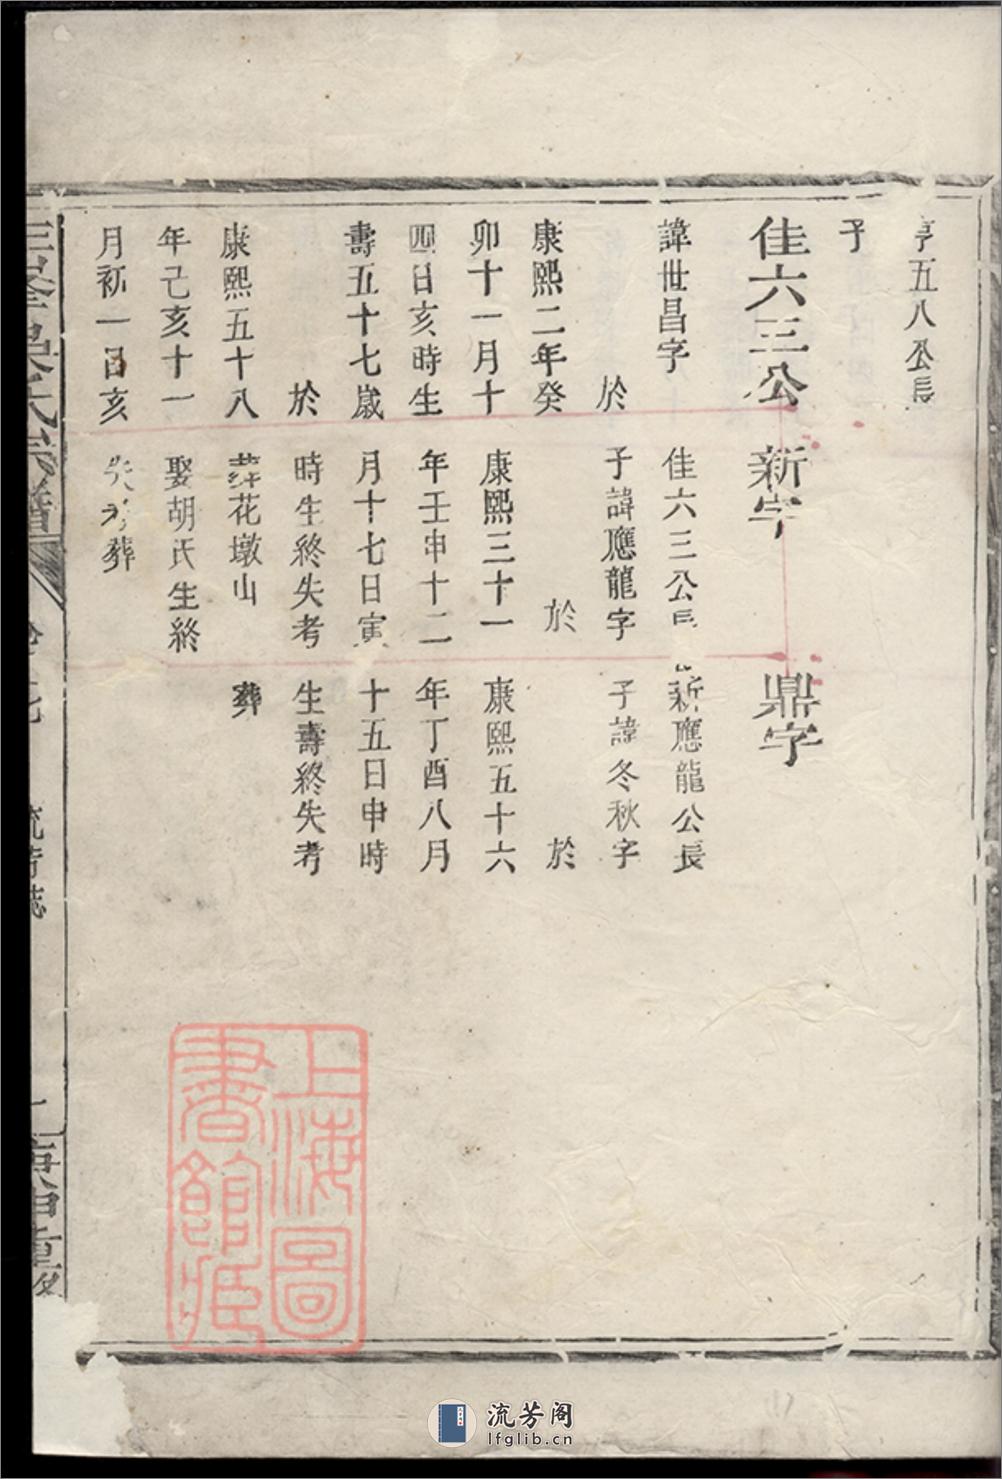 亨五八公長
子
佳六三公
新字
鼎字
諱世昌字
於
康熙二年癸
卯十一月十
四日亥時生
壽五十七歲
於
康熙五十八
年己亥十一
月初一日亥
佳六三公長
子諱應龍字
於
康熙三十一
年壬申十二
月十七日寅
時生終失考
葬花墩山
娶胡氏生終
失考葬
新應龍公長
子諱冬秋字
於
康熙五十六
年丁酉八月
十五日申時
生壽終失考
葬
吳氏
譜
庚申重
上海圖
書館藏
流芳阁
lfglib.cn